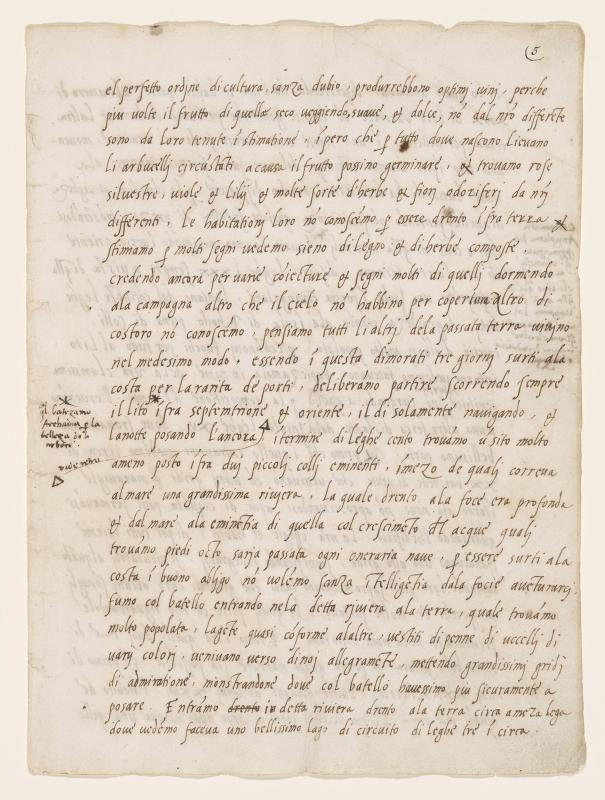 5
el perfetto ordine di cultura, sanza dubio, produrrebbono optimj vinj, perche
piu volte il frutto di quelle seco veggiendo, suave, & dolce, nō dal nr̄o differēte
sono da loro tenute ī stimatione, īpero che p tutto dove nascono lievano
li arbucellj circūstāti a causa il frutto possino germinare, & trovamo rose
silvestre, viole & lilij & molte sorte d'herbe & fiorj odoriferj da nrj
differenti, le habitationj loro nō conoscēmo p essere drento īfra terra
stimiamo p molti segni vedemo sieno di legno & di herbe composte,
credendo ancora per varie cōiecture & segni molti di quellj dormendo
ala campagna altro che il cielo nō habbino per copertura altro di
costoro nō conoscēmo, pensiamo tutti li altrj dela passata terra vivino
nel medesimo modo, essendo ī questa dimorati tre giornj surti ala
costa per la rarita de porti, deliberāmo partire scorrendo sempre
il lito īfra septemtrione & oriente, il dì solamente navigando, &
la notte posando l'ancora, ī termine di leghe cento trovāmo ū sito molto
* 
ql. batezamo
Archadia p la
bellezza de li
arbori
vide retro
ameno posto īfra dui piccoli collj eminenti, ī mezo de quali correva
al mare una grandissima riviera, la quale drento ala foce era profonda
& dal mare ala eminētia di quella col crescimēto dl acque qualj
trovāmo piedi octo saria passata ogni oneraria nave, p essere surti ala
costa ī buono obligo nō volēmo sanza ītelligētia dala focie avēturarcj.
fumo col batello entrando nela detta riviera ala terra, quale trovāmo
molto popolata, la gēte quasi cōforme al altre, vestiti di penne di uccellj di
varij colorj, venivano verso di noj allegramēte, mettendo grandissimj gridj
di admiratione, monstrandone dove col batello havessimo piu sicuramente a
posare. Entrāmo drento in detta riviera drento ala terra circa a meza lega
dove vedēmo faceva uno bellissimo lago di circuito di leghe tre ī circa.